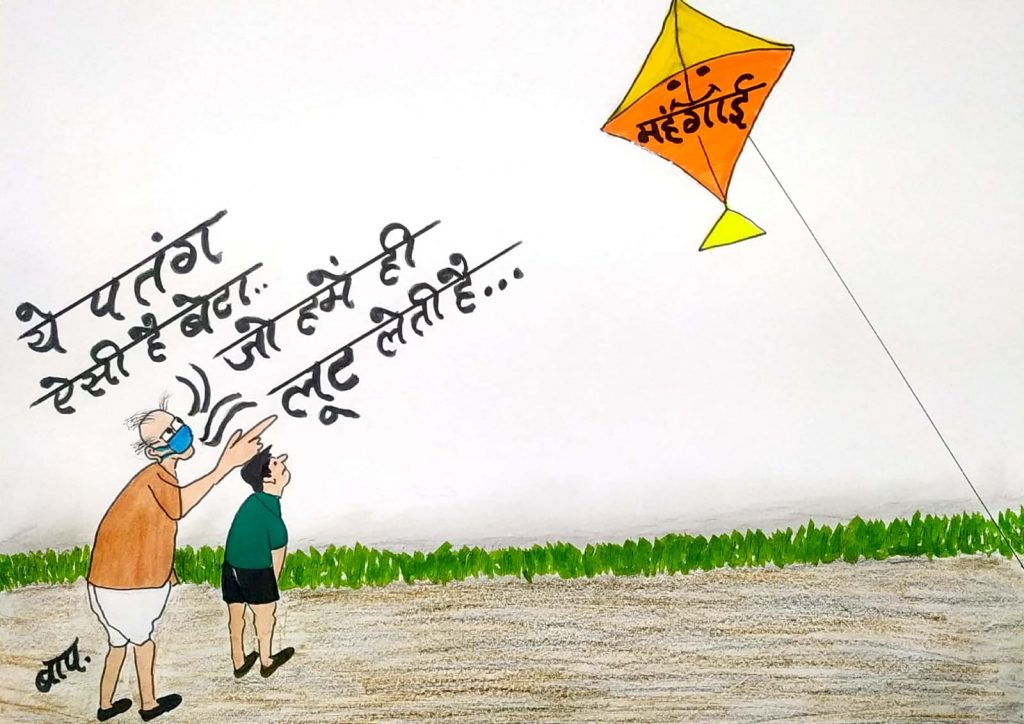 महंगाई
ये पतंग
ऐसी है बेटा..
जो हमें ही
लूट लेती है...
बाप.